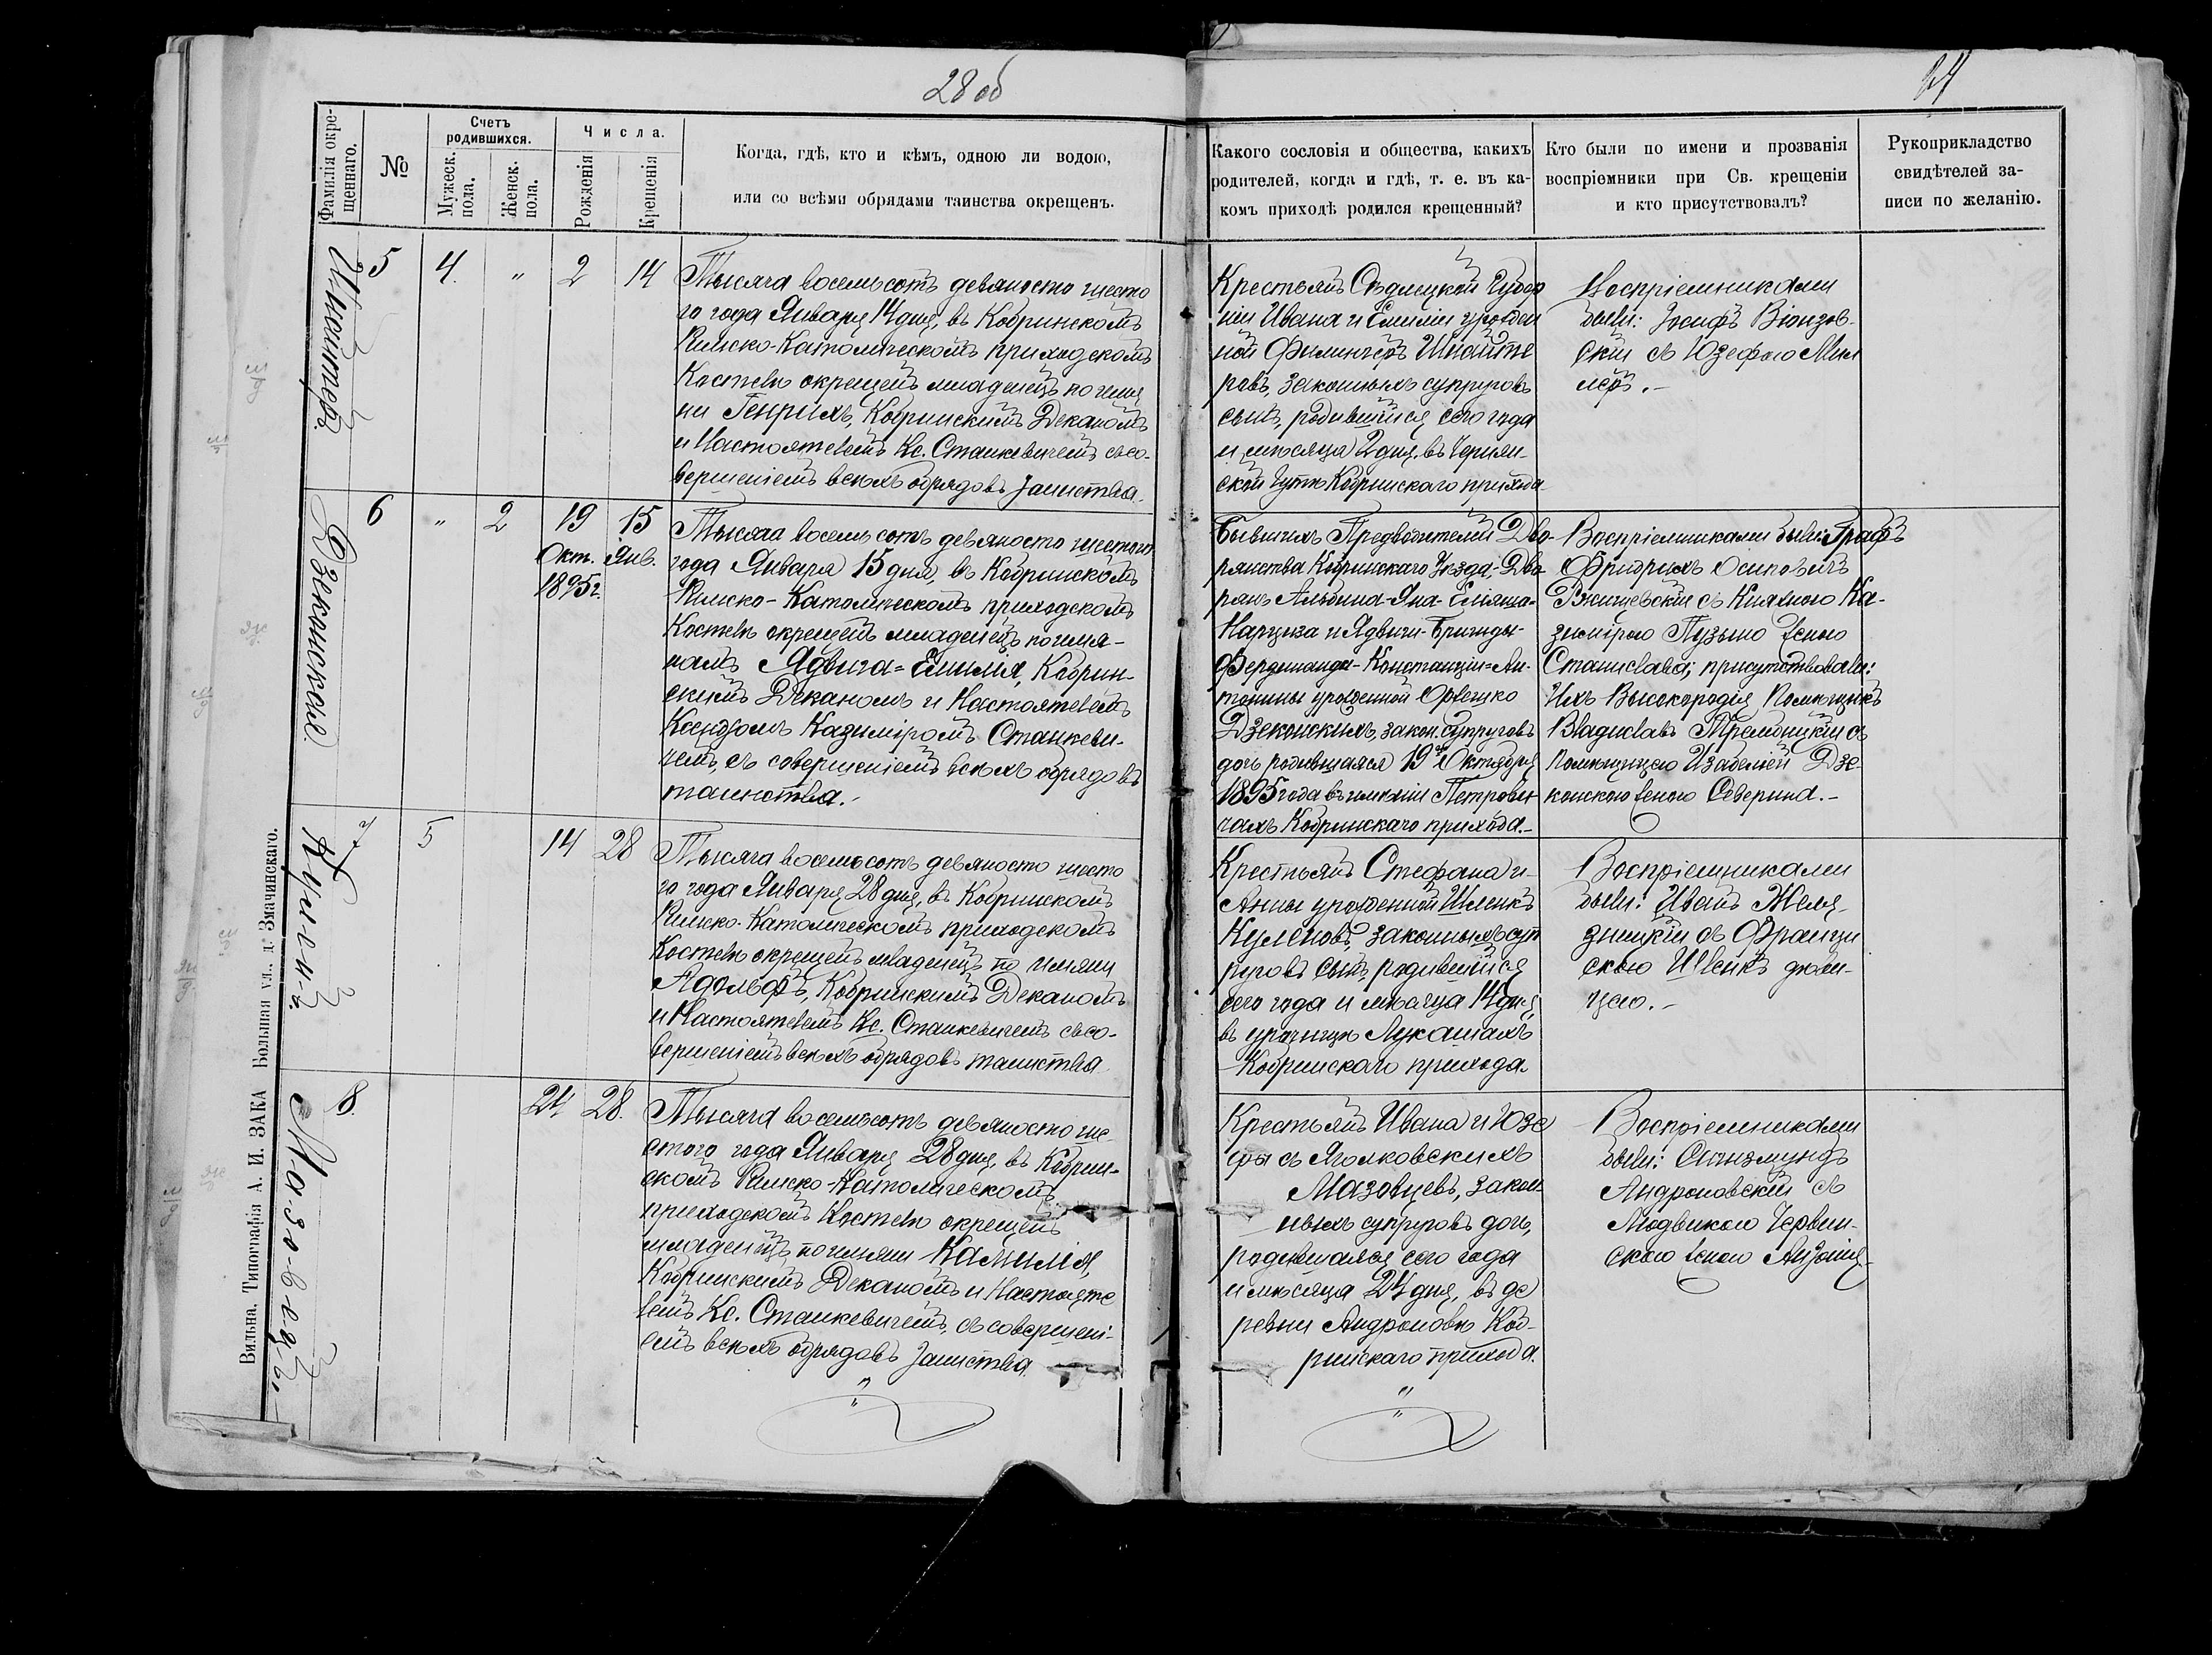 28 об
Фамилія окре-
щеннаго.
№
Счетъ
родившихся.
Мужеск.
пола.
Женск.
пола.
Числа.
Рожденія
Крещенія
Когда, гдѣ, кто и кѣмъ, одною ли водою,
или со всѣми обрядами таинства окрещенъ.
Какого сословія и общества, какихъ
родителей, когда и гдѣ, т. е. въ ка-
комъ приходѣ родился крещенный?
Кто были по имени и прозванія
воспріемники при Св. крещеніи
и кто присутствовалъ?
Рукоприкладство
свидѣтелей за-
писи по желанію.
5 4. " 2 14
Тысяча восемьсотъ девяносто шесто
го года Января 14 дня, въ Кобринскомъ
Римско-Католическомъ приходскомъ
Костелѣ окрещенъ младенецъ по имя
ни Генрихъ, Кобринскимъ Деканомъ
и Настоятелемъ Кс. Станкевичемъ съ со-
вершеніемъ всѣхъ обрядовъ Таинства.
Крестьянъ Сѣдлецкой Губер
ніи Ивана и Емиліи урожден
ной
законныхъ супруговъ
сынъ, родившійся сего года
и мѣсяца 2 дня, въ Чернян-
ской Гутѣ Кобринскаго прихода
Воспріемниками
были: Іосифъ
скій съ Юзефою Мил
леръ.-
Дзеконская
6 " 2 19 15
Окт. Янв.
1895 г.
Тысяча восемьсотъ девяносто шестого
года Января 15 дня, въ Кобринскомъ
Римско-Католическомъ приходскомъ
Костелѣ окрещенъ младенецъ по имя-
намъ Ядвига-Емилія, Кобрин-
скимъ Деканомъ и Настоятелемъ
Ксендзомъ Казиміромъ Станкеви-
чемъ, съ совершеніемъ всѣхъ обрядовъ
таинства.-
Бывшихъ Предводителей Дво-
рянства Кобринскаго Уѣзда, Дво-
рянъ Альбина-Яна-Еліяша-
Нарциза и Ядвиги-Бригиды-
Фердинанды-Констанціи-Ан-
тонины урожденной Оржешко
Дзеконскихъ, закон. супруговъ
дочь родившаяся 19го Октября
1895 года въ имѣніи Петрови-
чахъ Кобринскаго прихода.-
Воспріемниками были: Графъ
Фридрихъ Осиповичъ
Ржищевскій съ Княжною Ка-
зимірою Пузыно женою
Станислава; присутствовали:
Ихъ Высокородія Помѣщикъ
Владиславъ Трембицкій съ
помѣщицею Изабеллей Дзе-
конскою женою Северина.-
Куленъ.
7 5 14 28
Тысяча восемьсотъ девяносто шесто
го года Января 28 дня, въ Кобринскомъ
Римско-Католическомъ приходскомъ
Костелѣ окрещенъ младенецъ по имяни
Адольфъ, Кобринскимъ Деканомъ
и Настоятелемъ Кс. Станкевичемъ съ со-
вершеніемъ всѣхъ обрядовъ таинства.
Крестьянъ Стефана и
Анны урожденной
Куленовъ, законныхъ суп
руговъ сынъ, родившійся
сего года и мѣсяца 14 дня,
въ урочищѣ Лукашахъ
Кобринскаго прихода.
Воспріемниками
были: Иванъ Желя-
зницкій съ Францы
скою дѣви-
цею.-
Мазовецъ.
8. 24 28.
Тысяча восемьсотъ девяносто ше-
стого года Января 28 дня, въ Кобрин-
скомъ Римско-Католическомъ
приходскомъ Костелѣ окрещенъ
младенецъ, по имяни Камилія,
Кобринскимъ Деканомъ и Настояте
лемъ Кс. Станкевичемъ, съ совершені-
емъ всѣхъ обрядовъ Таинства.
Крестьянъ Ивана и Юзе
фы съ Яголковскихъ
Мазовцевъ, закон
ныхъ супруговъ дочь,
родившаяся сего года
и мѣсяца 24 дня, въ де
ревни Андроновѣ Коб-
ринскаго прихода.
Воспріемниками
были: Сигизмундъ
Андроновскій съ
Людвикою Червин-
скою женою Антонія.
Вильна. Типографія А. И. ЗАКА Большая ул., д. Змачинскаго.